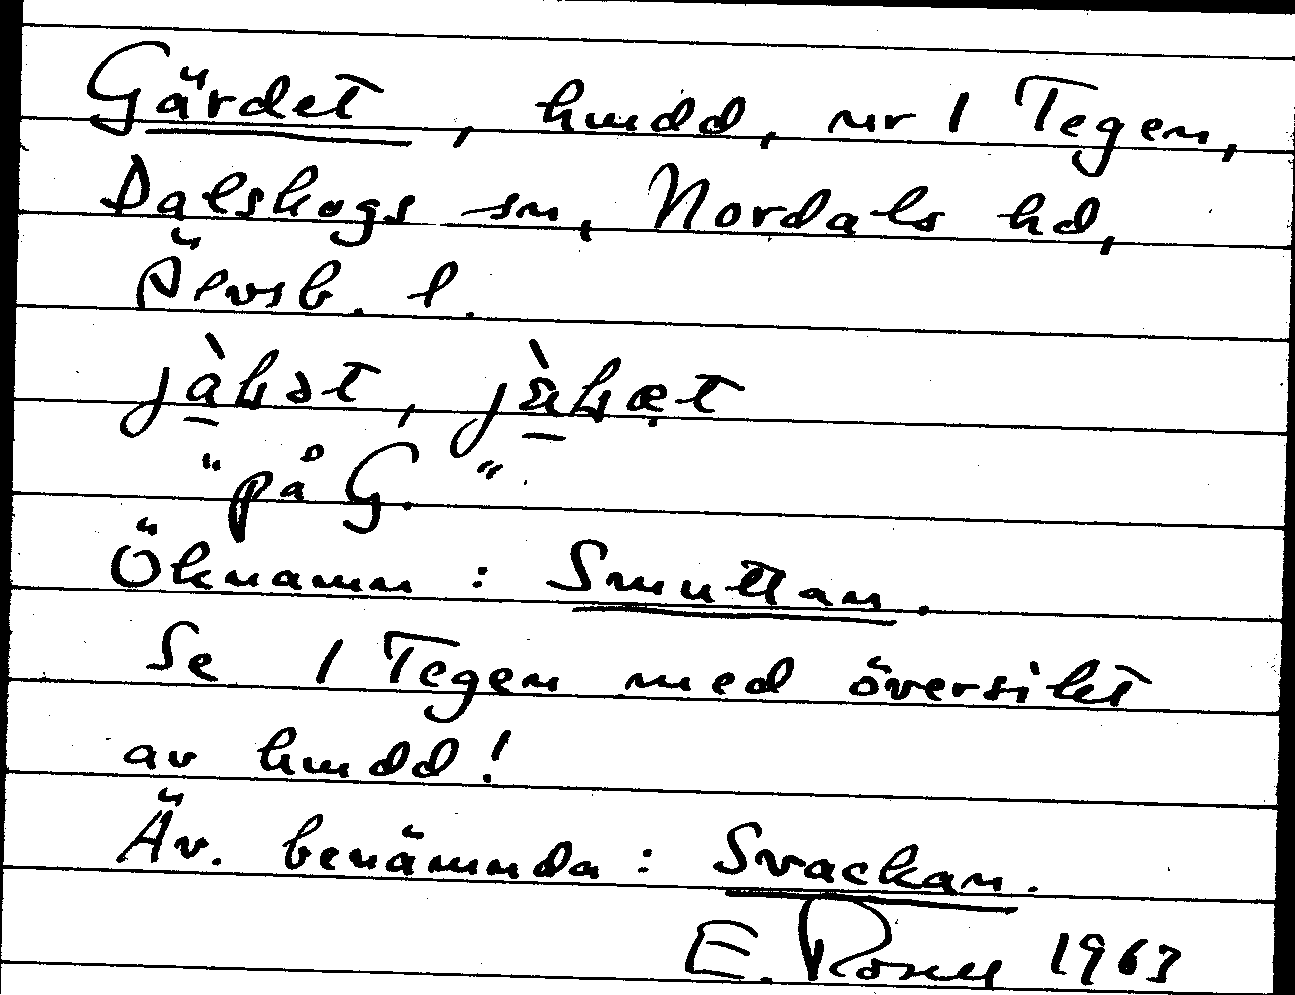 Gärdet, hmdd, nr 1 Tegen,
Dalskogs sn, Nordals hd,
Älvsb. l.
"på G."
Öknamn: Smuttan.
Se 1 Tegen med översikt
av hmdd!
Äv. benämnda: Svackan.
E. Rosell 1963